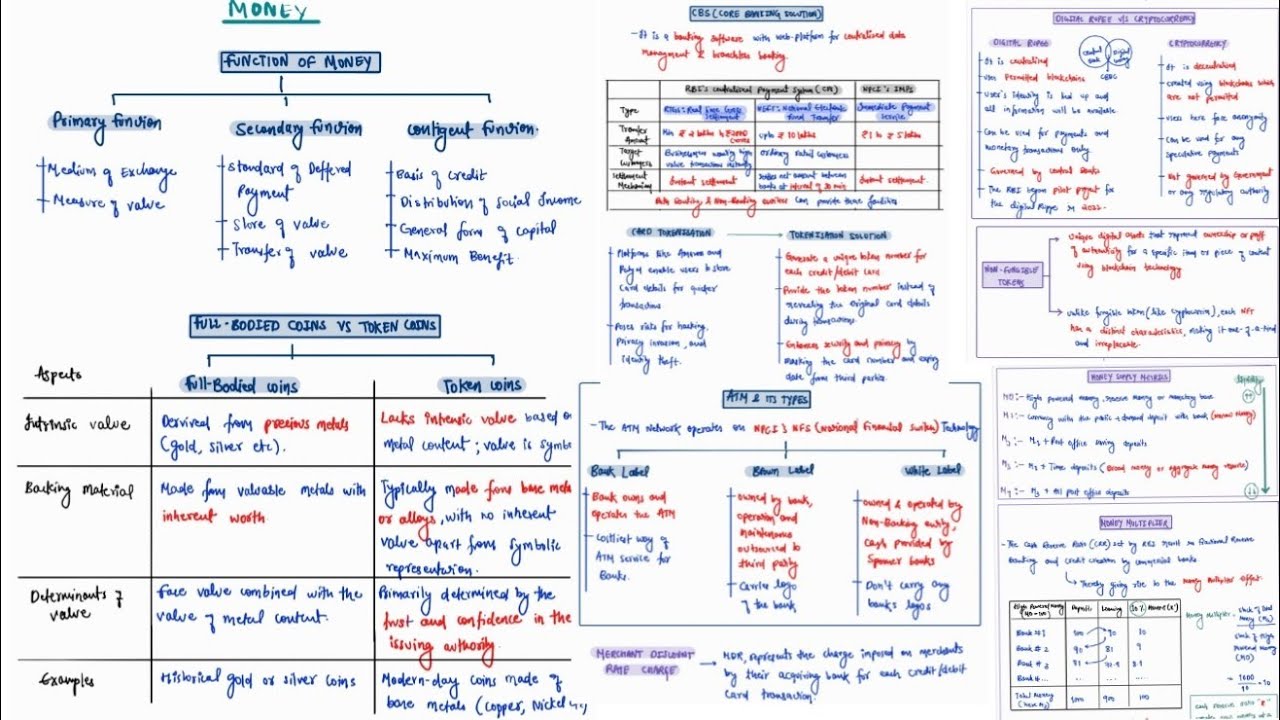 MONEY
FUNCTION OF MONEY
Primary function
Medium of Exchange
Measure of value
Secondary function
Standard of Deffered
Payment
Store of value
Transfer of value
Contigent function
Basis of Credit
Distribution of Social Income
General form of Capital
Maximum Benefit
FULL-BODIED COINS VS TOKEN COINS
Aspects
Full-Bodied coins
Token coins
Intrinsic value
Derived from precious metals
(gold, silver etc).
Lacks intrinsic value based on
metal content; value is symbo
Backing material
Made from valuable metals with
inherent worth
Typically made from base meta
or alloys, with no inherent
value apart from symbolic
representation.
Determinants of
value
Face value combined with the
value of metal content.
Primarily determined by the
trust and confidence in the
issuing authority.
Examples
Historical gold or silver coins
Modern-day coins made of
base metals (copper, Nickel
CBS (CORE BANKING SOLUTION)
- It is a banking software with web-platform for centralised data
management & branchless banking
RBI's centralised Payment System (CPS)
NPCI's IMPS
Type
RTGS: Real Time Gross
Settlement
NEFT: National Electronic
Fund Transfer
Immediate Payment
Service
Transfer
Amount
Min ₹ 2 lakhs
upto ₹ 10 lakhs
₹1 to ₹ 5 lakhs
Target
Customers
Businessmen wanting high
value transactions instantly
ordinary retail customers
Settlement
Mechanism
Instant settlement
Settles net amount between
banks at interval of 30 min
Instant settlement.
Both Banking & Non-Banking entities can provide these facilities
CARD TOKENISATION
TOKENISATION SOLUTION
Platforms like Amazon and
enable users to store
Card details for quicker
transactions
Poses risks for hacking,
Privacy invasion, and
identity theft.
Generate a unique token number for
each credit/debit card
Provide the token number instead of
revealing the original card details
during transactions.
Enhances security and privacy by
masking the card number and expiry
date from third parties.
ATM & ITS TYPES
- The ATM Network operates on NPCI's NFS (National Financial Switch) Technology
Bank Label
Bank owns and
operates the ATM
Costliest way of
ATM service for
Banks.
Brown Label
owned by bank,
operation and
maintenance
outsourced to
third party
Carries logo
of the bank
White Label
owned & operated by
Non-Banking entity,
Cash provided by
Sponsor banks
Don't carry any
bank's logos
MERCHANT DISCOUNT
RATE CHARGE
MDR, represents the charge imposed on merchants
by their acquiring bank for each credit/debit
card transaction.
DIGITAL RUPEE V/S CRYPTOCURRENCY
DIGITAL RUPEE
CBDC
CRYPTOCURRENCY
It is centralized
uses Permitted blockchains
user's identity is tied up and
all information will be available
Can be used for payments and
monetary transactions only
Governed by central banks
The RBI began pilot project for
the digital Rupee in 2022.
It is decentralized
created using blockchains which
are not permitted
users have anonymity
Can be used for any
speculative payments
Not governed by Government
or any regulatory authority
NON-FUNGIBLE
TOKENS
unique digital assets that represent ownership or proof
of authenticity for a specific item or piece of content
using blockchain technology
unlike fungible token (like cryptocurrencies), each NFT
has a distinct characteristics, making it one-of-a-kind
and irreplaceable.
MONEY SUPPLY METRICS
M0 :- High powered money, reserve money or monetary base
M1 :- Currency with the public + demand deposit with bank (Narrow Money)
M2 :- M1 + Post office saving deposits
M3 :- M1 + Time deposits (Broad money or aggregate money resource)
M4 :- M3 + All post office deposits
MONEY MULTIPLIER
- The Cash Reserve Ratio (CRR) set by RBI result in fractional Reserve
Banking and credit creation by commercial banks
Thereby giving rise to the money multiplier effect.
Deposit
Lending
Bank #1
100
90
10
Bank #2
90
81
9
Bank #3
81
8.1
Total Money
1000
900
100
Money Multiplier
= 1000